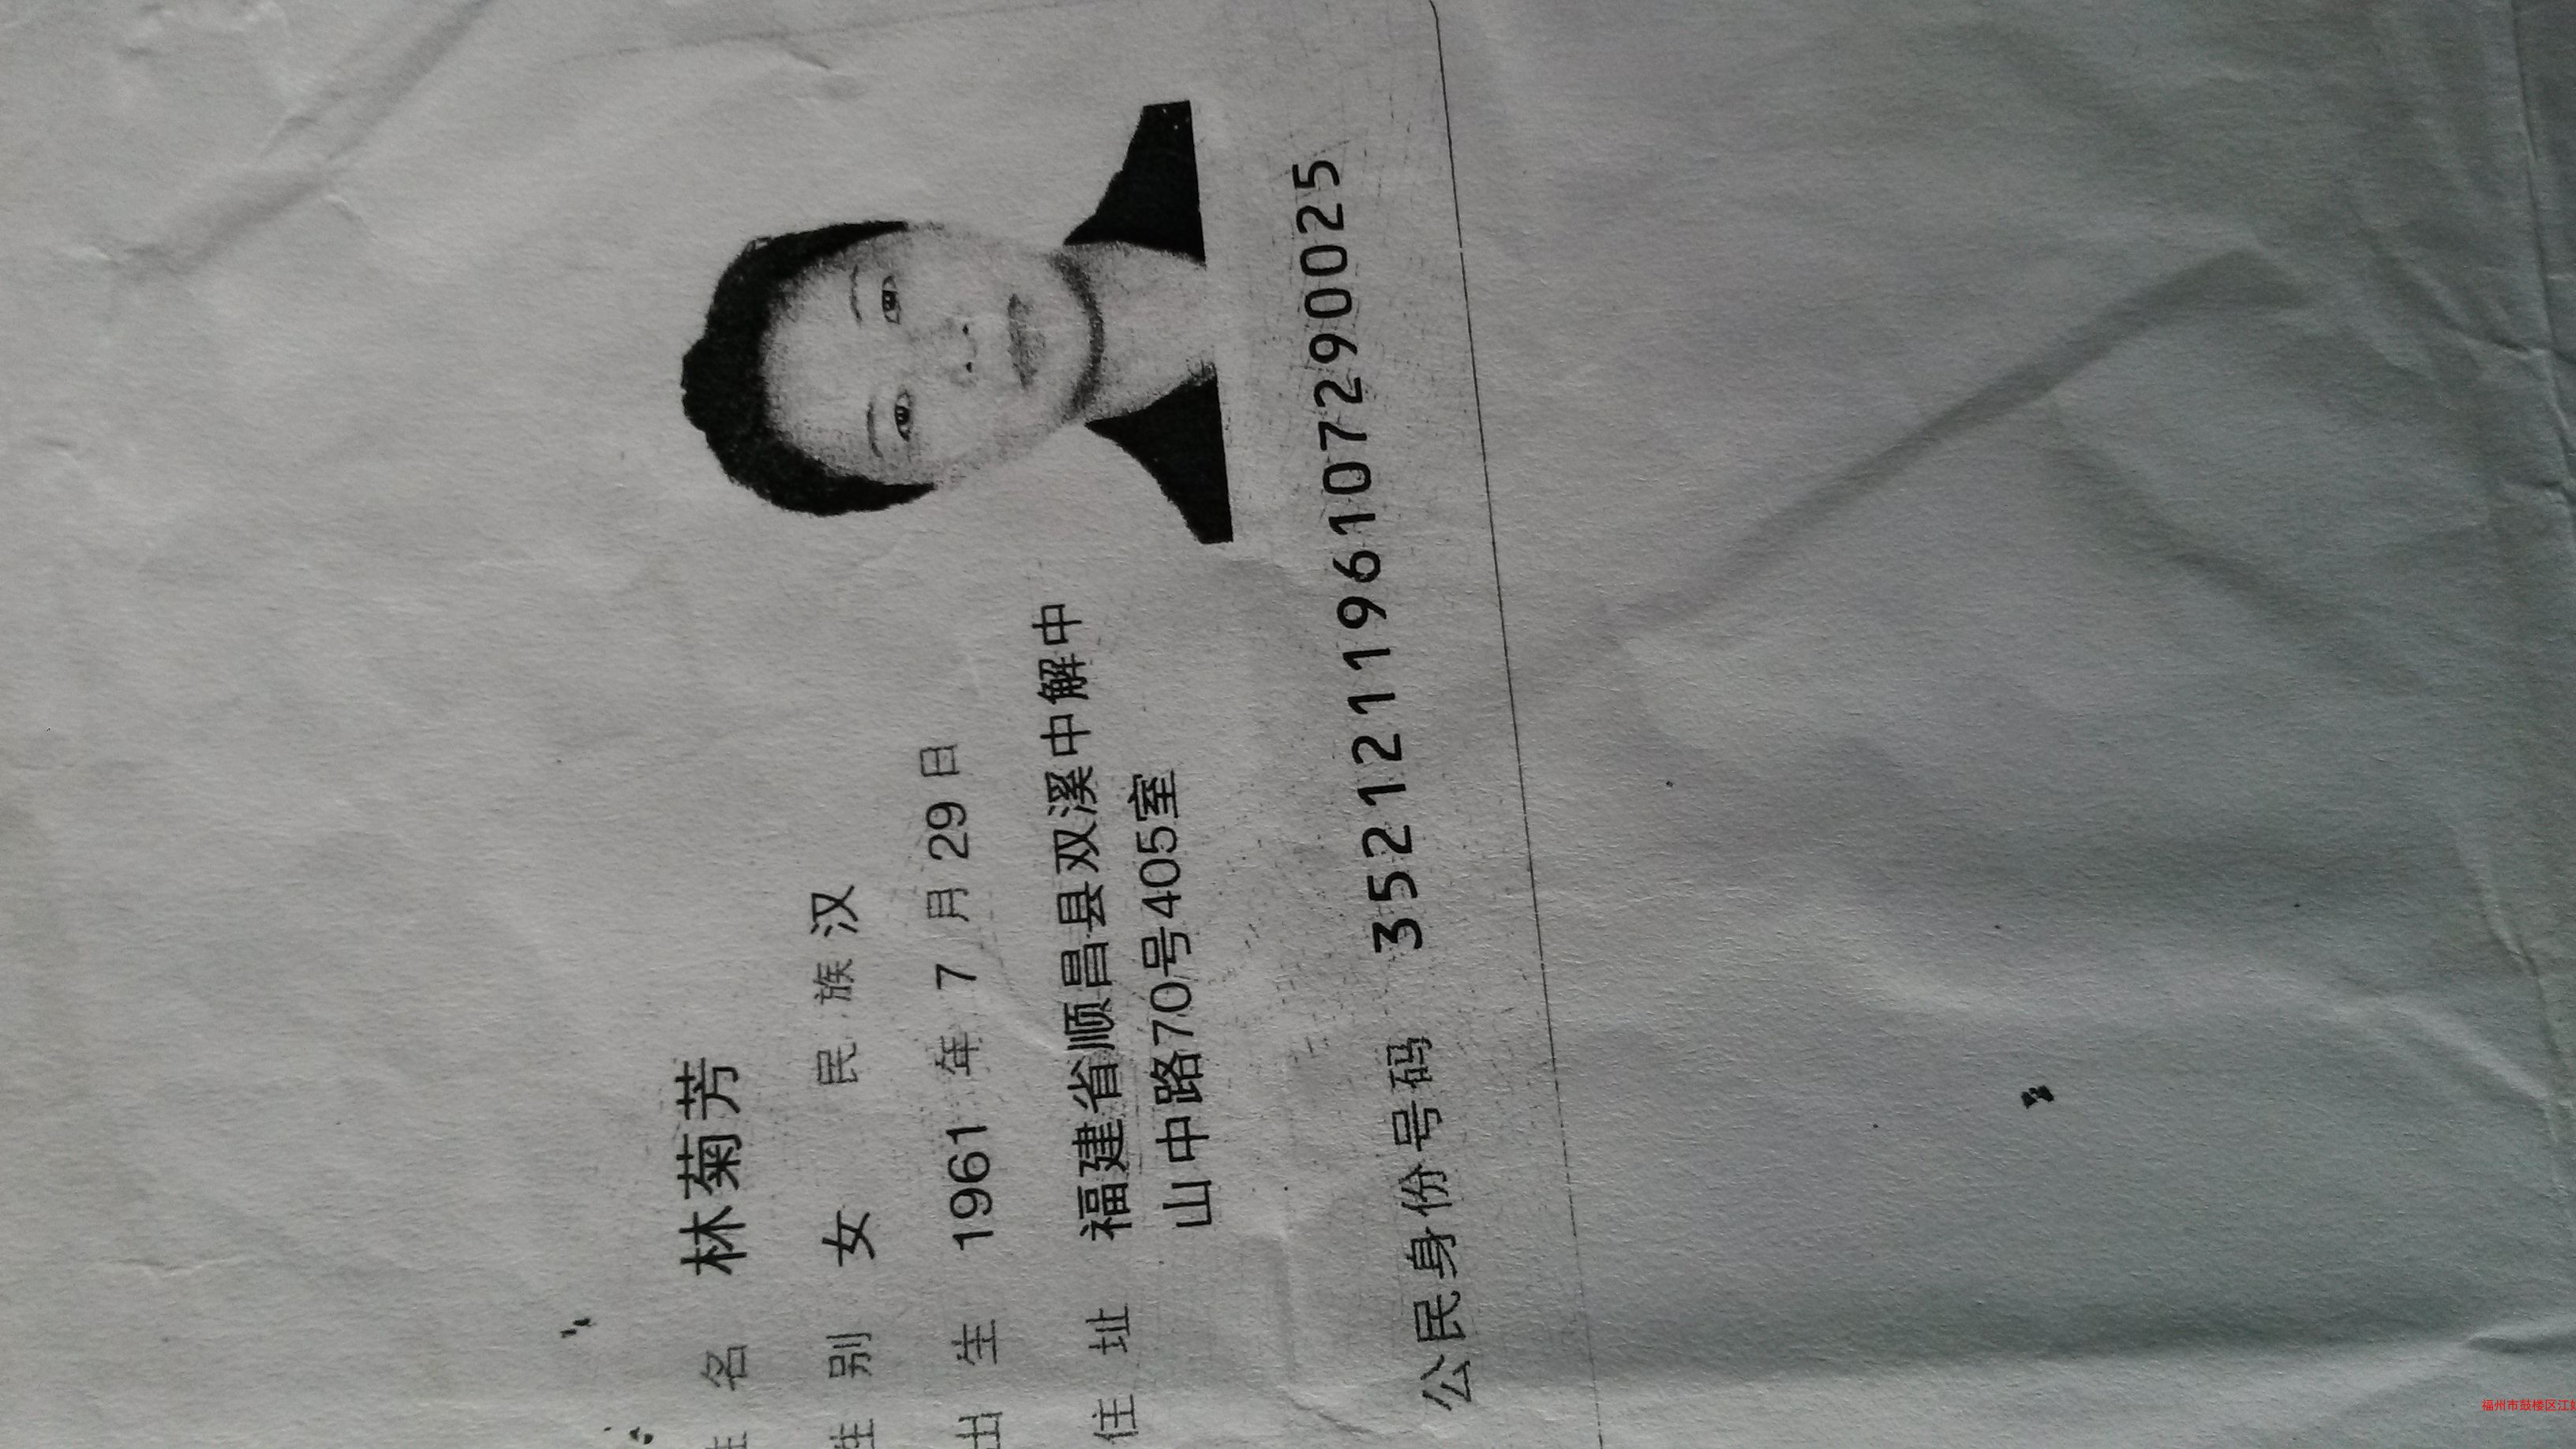 姓名 林菊芳
性别 女 民族 汉
出生 1961 年 7 月 29 日
住址 福建省顺昌县双溪中解中
山中路70号405室
公民身份号码 352121196107290025
福州市鼓楼区江